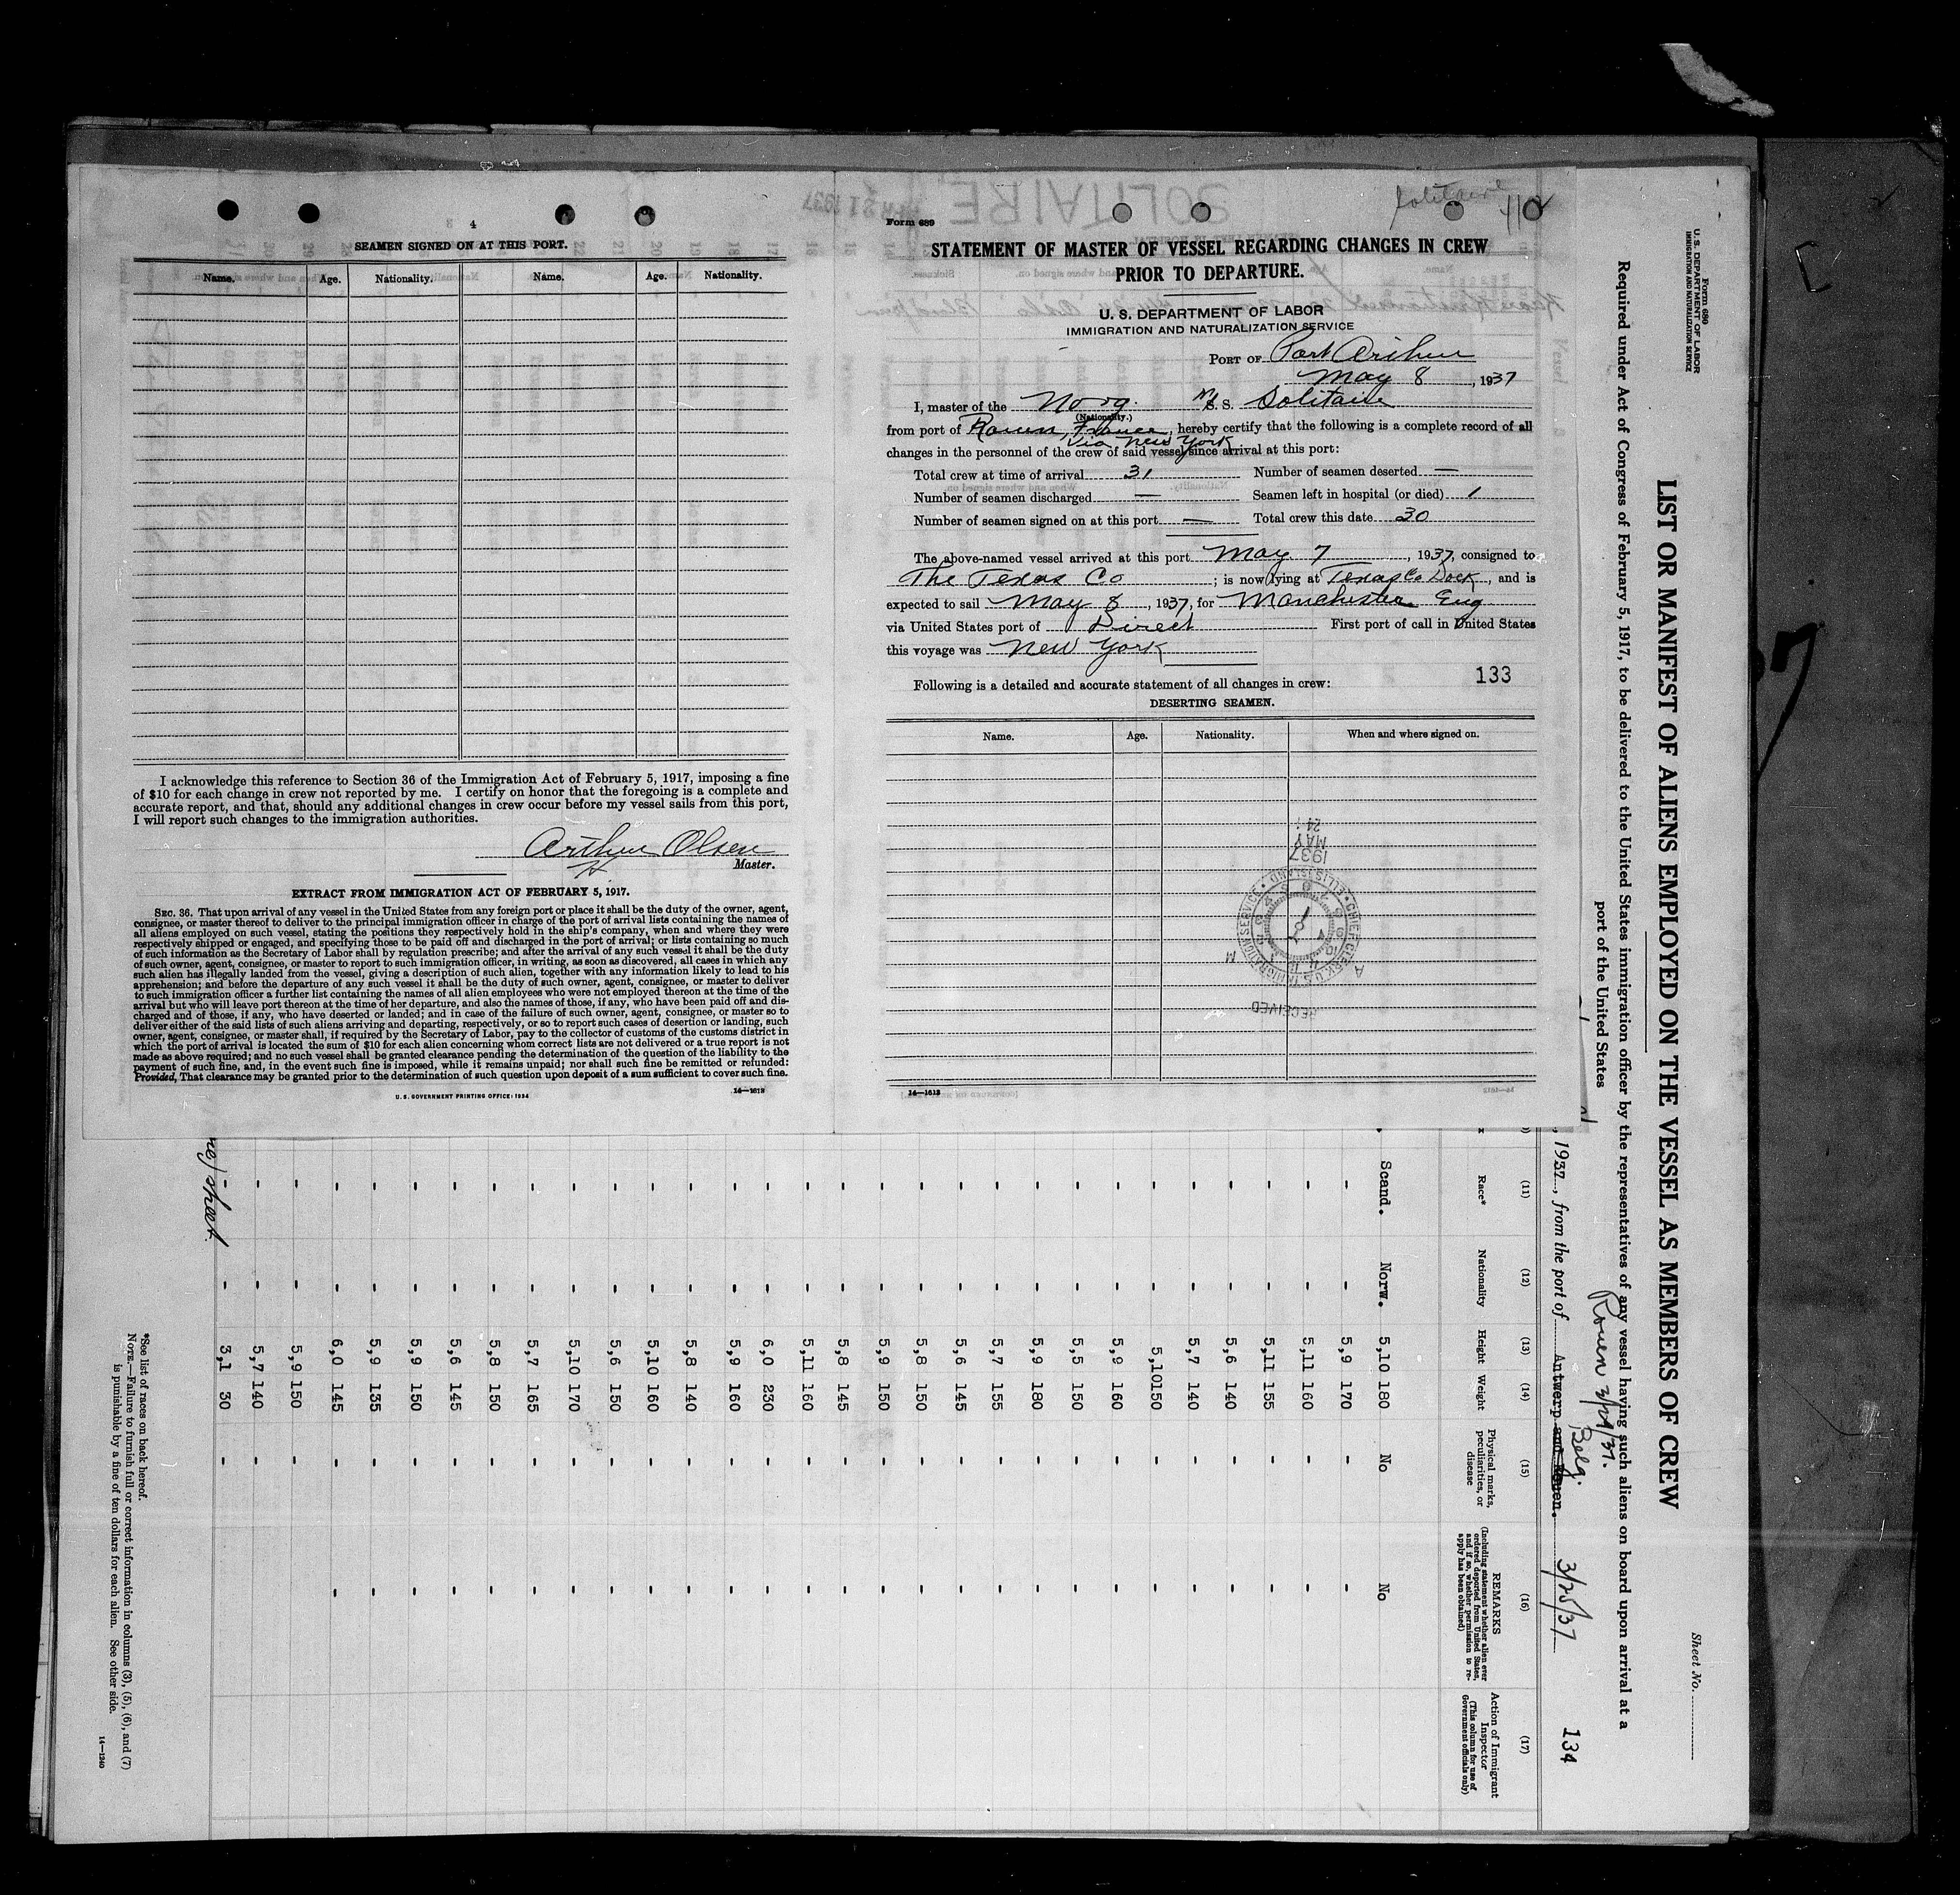 4
SEAMEN SIGNED ON AT THIS PORT.
Name. Age. Nationality. Name. Age. Nationality.
I acknowledge this reference to Section 36 of the Immigration Act of February 5, 1917, imposing a fine
of $10 for each change in crew not reported by me. I certify on honor that the foregoing is a complete and
accurate report, and that, should any additional changes in crew occur before my vessel sails from this port,
I will report such changes to the immigration authorities.
Arthur Olsen
Master.
EXTRACT FROM IMMIGRATION ACT OF FEBRUARY 5, 1917.
SEC. 36. That upon arrival of any vessel in the United States from any foreign port or place it shall be the duty of the owner, agent,
consignee, or master thereof to deliver to the principal immigration officer in charge of the port of arrival lists containing the names of
all aliens employed on such vessel, stating the positions they respectively hold in the ship's company, when and where they were
respectively shipped or engaged, and specifying those to be paid off and discharged in the port of arrival; or lists containing so much
of such information as the Secretary of Labor shall by regulation prescribe; and after the arrival of any such vessel it shall be the duty
of such owner, agent, consignee, or master to report to such immigration officer, in writing, as soon as discovered, all cases in which any
such alien has illegally landed from the vessel, giving a description of such alien, together with any information likely to lead to his
apprehension; and before the departure of any such vessel it shall be the duty of such owner, agent, consignee, or master to deliver
to such immigration officer a further list containing the names of all alien employees who were not employed thereon at the time of the
arrival but who will leave port thereon at the time of her departure, and also the names of those, if any, who have been paid off and dis-
charged and of those, if any, who have deserted or landed; and in case of the failure of such owner, agent, consignee, or master so to
deliver either of the said lists of such aliens arriving and departing, respectively, or so to report such cases of desertion or landing, such
owner, agent, consignee, or master shall, if required by the Secretary of Labor, pay to the collector of customs of the customs district in
which the port of arrival is located the sum of $10 for each alien concerning whom correct lists are not delivered or a true report is not
made as above required; and no such vessel shall be granted clearance pending the determination of the question of the liability to the
payment of such fine, and, in the event such fine is imposed, while it remains unpaid; nor shall such fine be remitted or refunded:
Provided, That clearance may be granted prior to the determination of such question upon deposit of a sum sufficient to cover such fine.
U.S. GOVERNMENT PRINTING OFFICE: 1934 14—1613
Solitaire 110
Form 689
STATEMENT OF MASTER OF VESSEL REGARDING CHANGES IN CREW
PRIOR TO DEPARTURE.
U. S. DEPARTMENT OF LABOR
IMMIGRATION AND NATURALIZATION SERVICE
PORT OF Port Arthur
May 8, 1937
I, master of the Norg. M/S. S. Solitaire
(Nationality.)
from port of Rouen, France, hereby certify that the following is a complete record of all
via New York
changes in the personnel of the crew of said vessel since arrival at this port:
Total crew at time of arrival 31 Number of seamen deserted —
Number of seamen discharged — Seamen left in hospital (or died) 1
Number of seamen signed on at this port — Total crew this date 30
The above-named vessel arrived at this port May 7, 1937, consigned to
The Texas Co; is now lying at Texas Co Dock, and is
expected to sail May 8, 1937, for Manchester Eng
via United States port of Direct First port of call in United States
this voyage was New York
133
Following is a detailed and accurate statement of all changes in crew:
DESERTING SEAMEN.
Name. Age. Nationality. When and where signed on.
1937
MAY
24
CHIEF CLERK, U.S. IMMIGRATION SERVICE • ELLIS ISLAND
A M
RECEIVED
14—1613
Form 680
U. S. DEPARTMENT OF LABOR
IMMIGRATION AND NATURALIZATION SERVICE
Sheet No.
LIST OR MANIFEST OF ALIENS EMPLOYED ON THE VESSEL AS MEMBERS OF CREW
Required under Act of Congress of February 5, 1917, to be delivered to the United States immigration officer by the representatives of any vessel having such aliens on board upon arrival at a
port of the United States
Rouen 3/24/37.
Belg.
, 1937, from the port of Antwerp and Rouen. 3/25/37 134
(11) (12) (13) (14) (15) (16) (17)
Race* Nationality Height Weight Physical marks, peculiarities, or disease REMARKS (Including statement whether alien ever ordered deported from United States, and if so, whether permission to re-apply has been obtained) Action of Immigrant Inspector (This column for use of Government officials only)
Scand. Norw. 5,10 180 No No
- - 5,9 170 - -
- - 5,11 160 - -
- - 5,11 155 - -
- - 5,6 140 - -
- - 5,7 140 - -
- - 5,10 150 - -
- - 5,9 160 - -
- - 5,5 150 - -
- - 5,9 180 - -
- - 5,7 155 - -
- - 5,6 145 - -
- - 5,8 150 - -
- - 5,9 150 - -
- - 5,8 145 - -
- - 5,11 160 - -
- - 6,0 230 - -
- - 5,9 160 - -
- - 5,8 140 - -
- - 5,10 160 - -
- - 5,6 150 - -
- - 5,10 170 - -
- - 5,7 165 - -
- - 5,8 150 - -
- - 5,6 145 - -
- - 5,9 150 - -
- - 5,9 135 - -
- - 6,0 145 - -
- - 5,9 150 -
- - 5,7 140 -
- - 3,1 30 -
sheet.
*See list of races on back hereof.
NOTE.—Failure to furnish full or correct information in columns (3), (5), (6), and (7)
is punishable by a fine of ten dollars for each alien. See other side.
14—1240